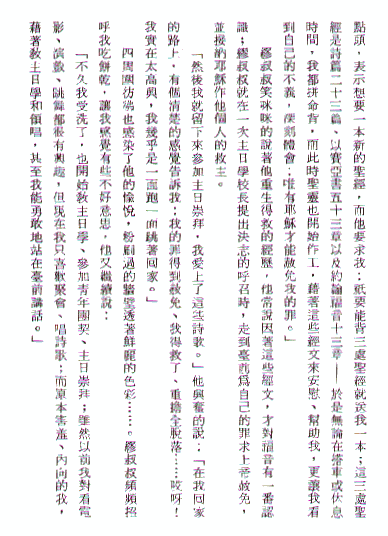 點頭，表示想要一本新的聖經，而他要求我，祇要能背三處聖經就送我一本；這三處聖
經是詩篇二十三篇、以賽亞書五十三章以及約翰福音十三章——於是無論在搭車或休息
時間，我都拼命背，而此時聖靈也開始作工，藉著這些經文來安慰、幫助我，更讓我看
到自己的不義，深刻體會；唯有耶穌才能赦免我的罪。」
繆叔叔笑咪咪的說著他重生得救的經歷，他常說因著這些經文，才對福音有一番認
識；繆叔叔就在一次主日學校長提出決志的呼召時，走到臺前為自己的罪求上帝赦免，
並接納耶穌作他個人的救主。
「然後我就留下來參加主日崇拜，我愛上了這些詩歌。」他興奮的說：「在我回家
的路上，有個清楚的感覺告訴我；我的罪得到赦免、我得救了、重擔全脫落……哎呀！
我實在太高興，我幾乎是一面跑一面跳著回家。」
四周圍彷彿也感染了他的愉悅，粉刷過的牆壁透著鮮麗的色彩……。繆叔叔頻頻招
呼我吃餅乾，讓我感覺有些不好意思，他又繼續說：
「不久我受洗了，也開始教主日學、參加青年團契、主日崇拜；雖然以前我對看電
影、演戲、跳舞都很有興趣，但現在我只喜歡聚會、唱詩歌；而原本害羞、內向的我，
藉著教主日學和領唱，甚至我能勇敢地站在臺前講話。」